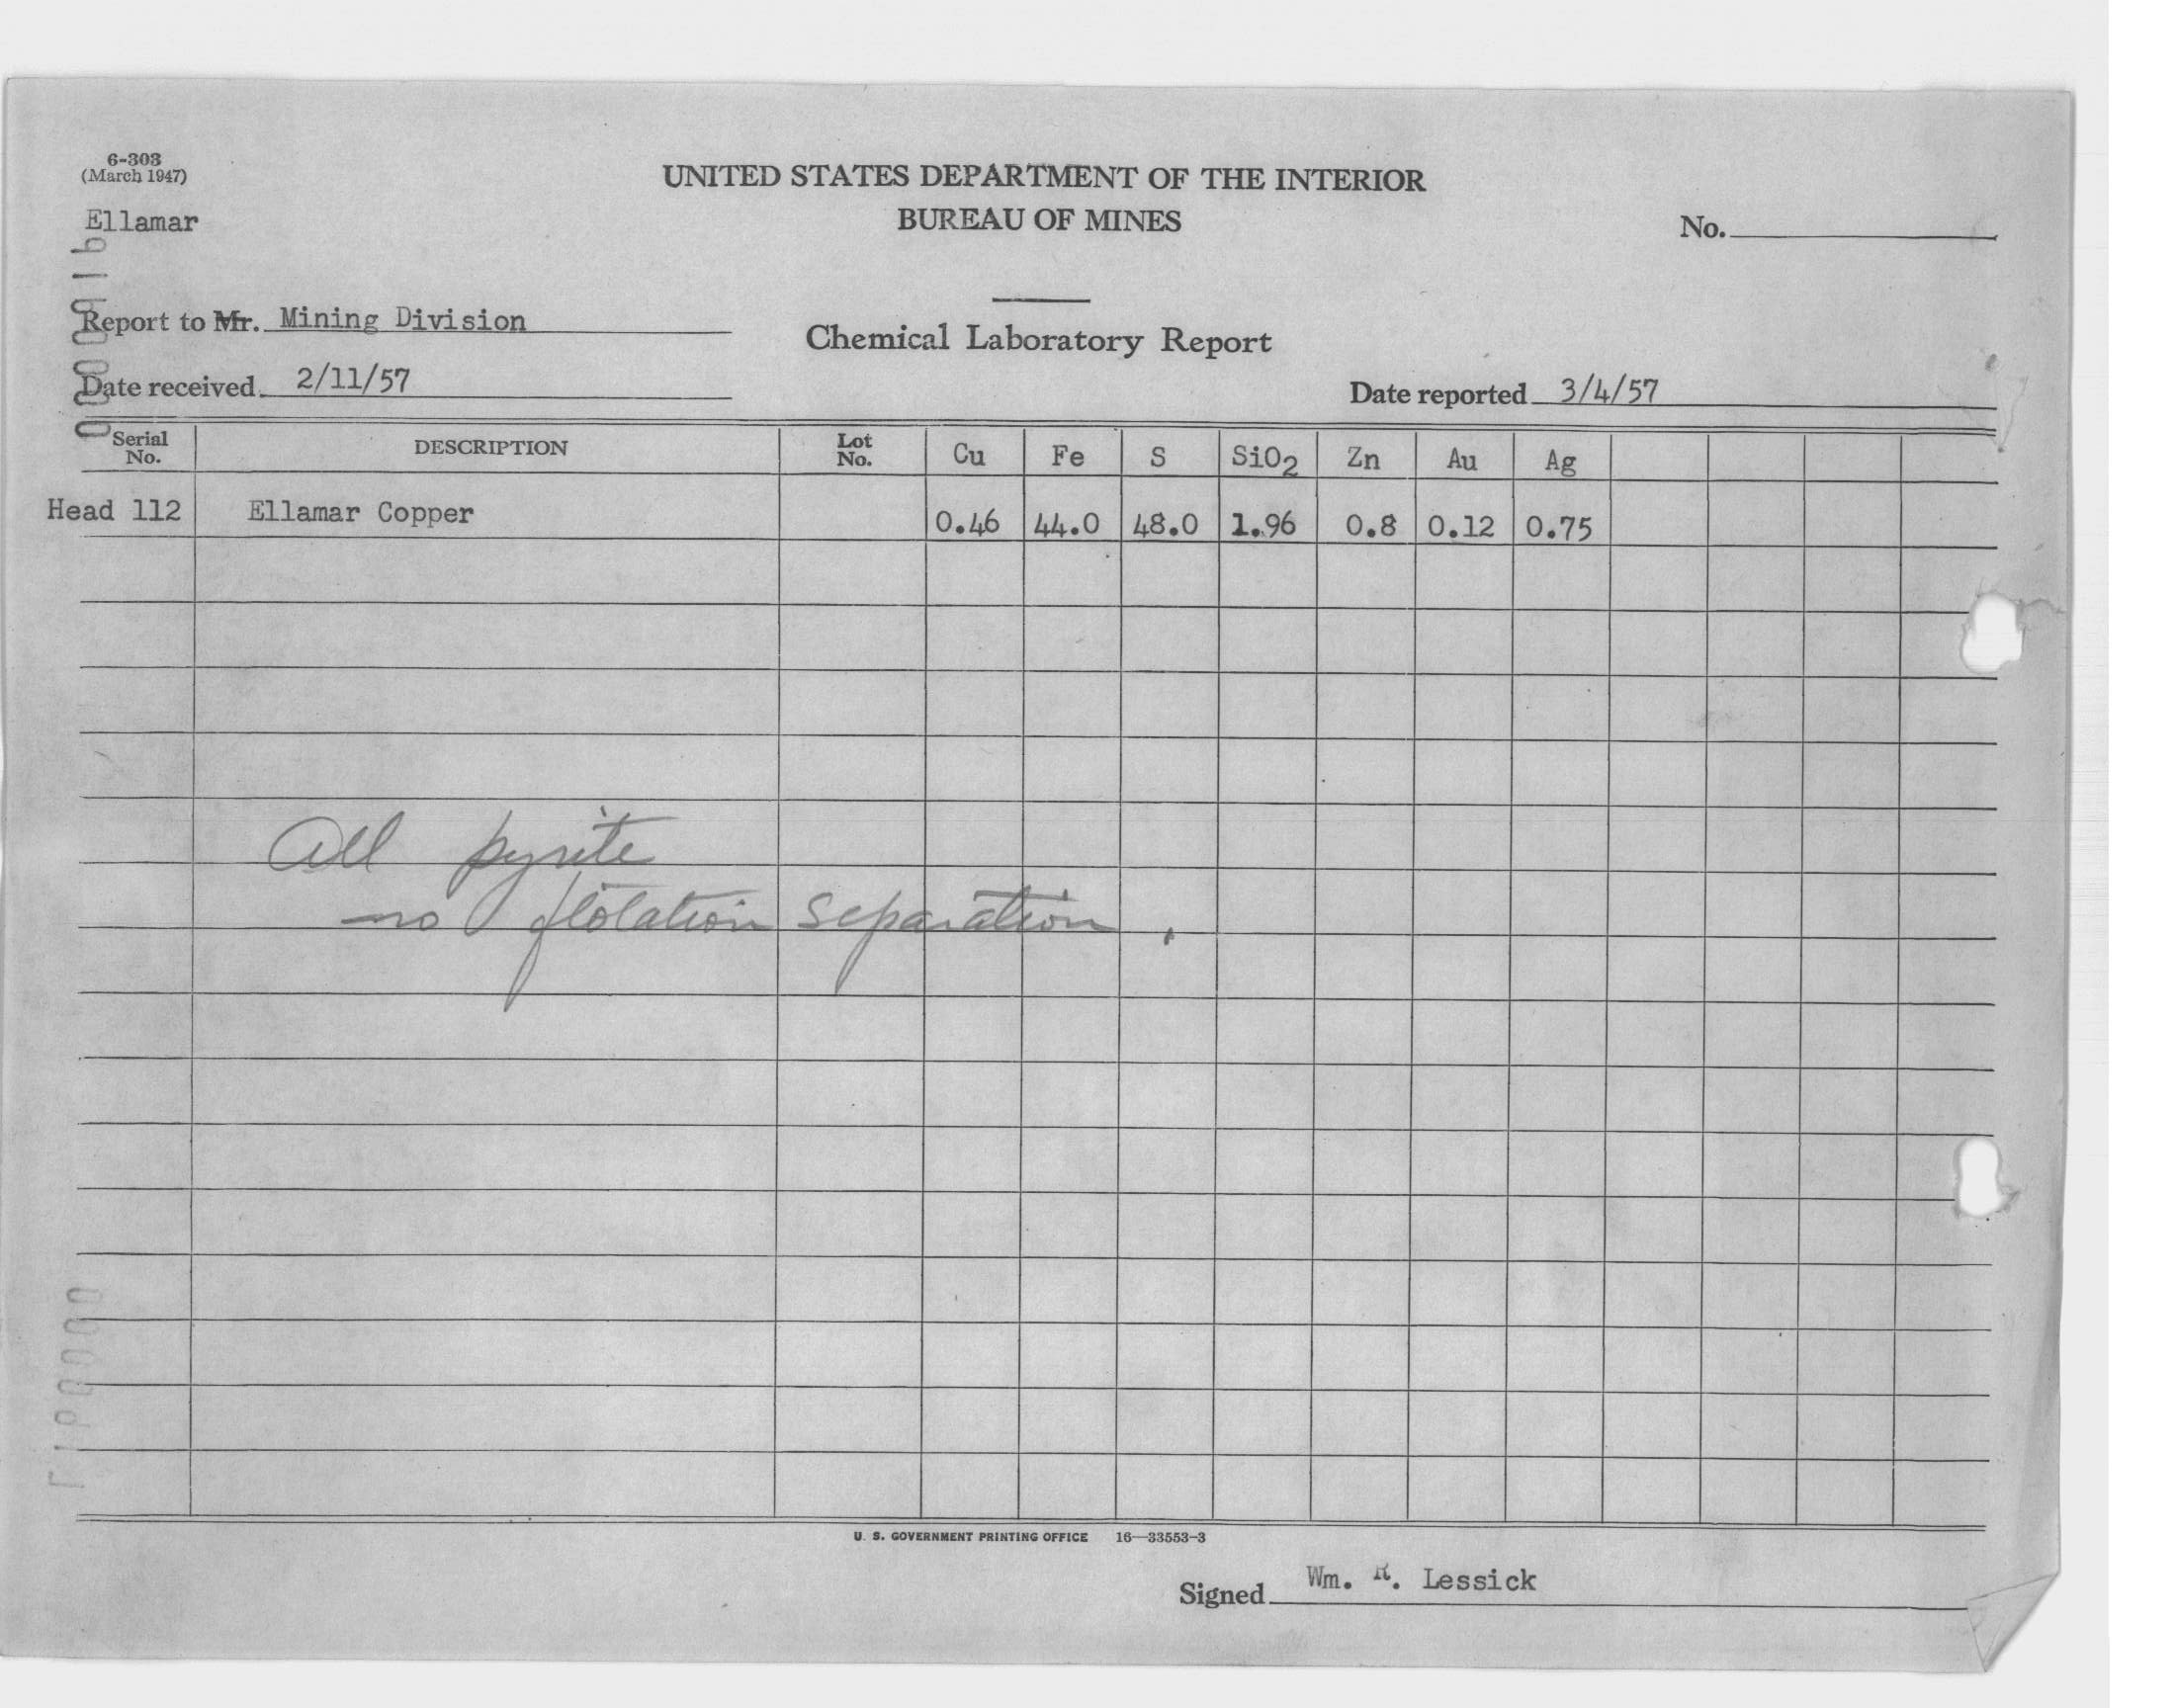 6-303
(March 1947)
UNITED STATES DEPARTMENT OF THE INTERIOR
Ellamar
BUREAU OF MINES
No.
Report to Mr. Mining Division
Chemical Laboratory Report
Date received 2/11/57
Date reported 3/4/57
Serial No. DESCRIPTION Lot No. Cu Fe S SiO2 Zn Au Ag
Head 112 Ellamar Copper 0.46 44.0 48.0 1.96 0.8 0.12 0.75
All pyrite
no flotation separation.
U. S. GOVERNMENT PRINTING OFFICE 16—33553-3
Signed Wm. R. Lessick